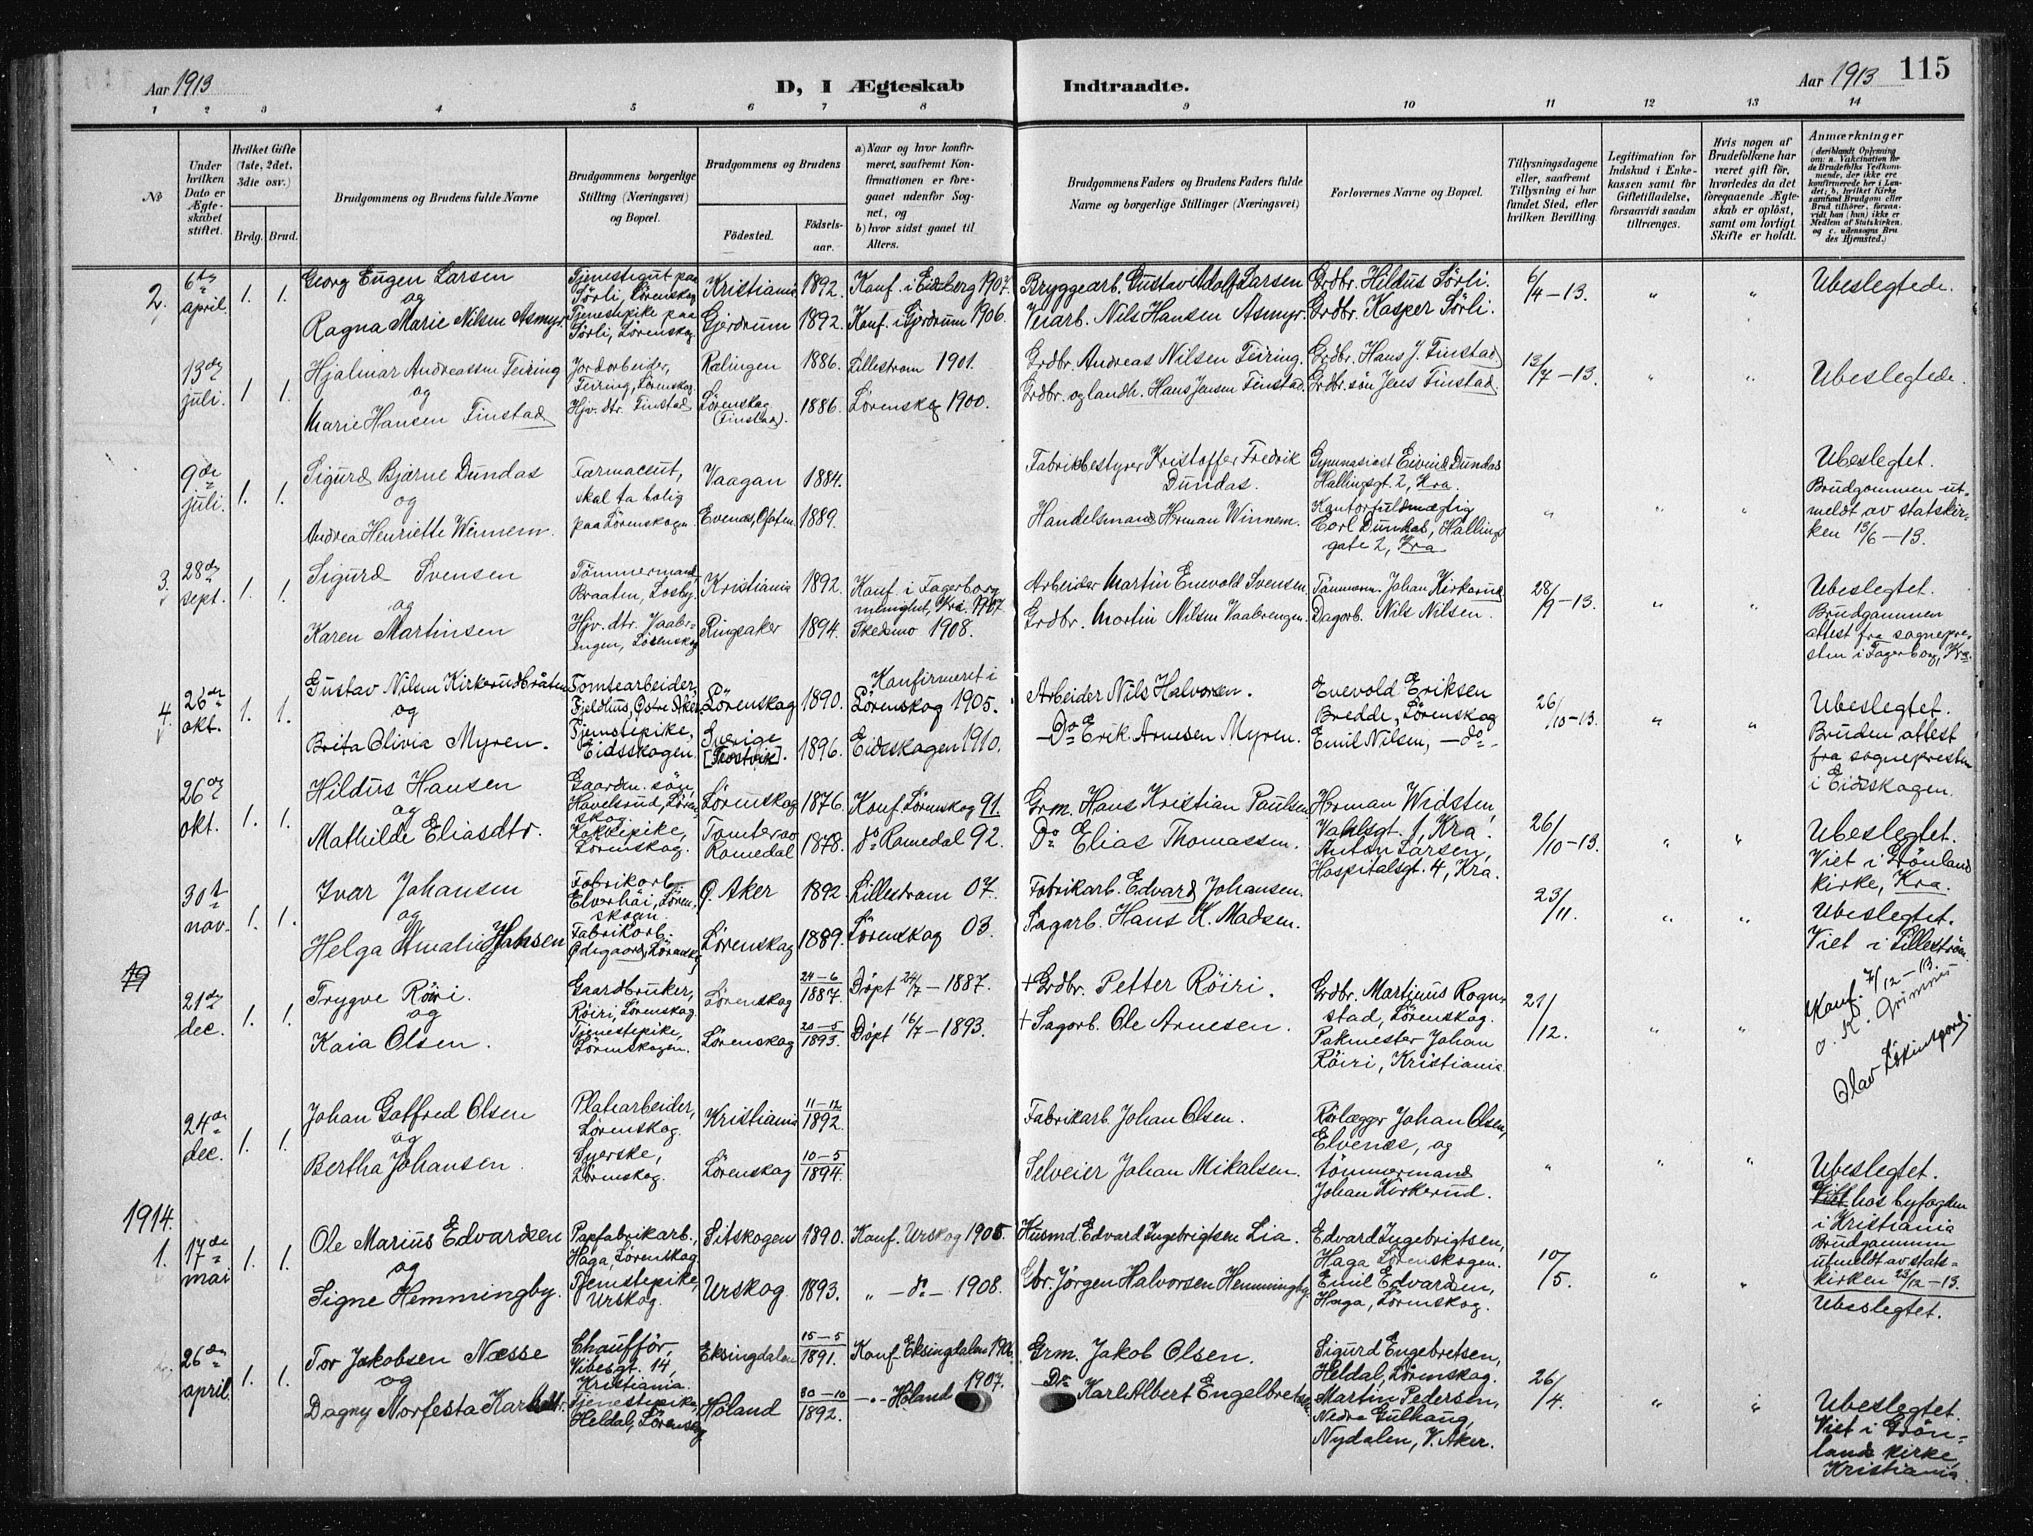 Aar 1913 D, I Ægteskab Indtraadte. Aar 1913 115
1 2 3 4 5 6 7 8 9 10 11 12 13 14
No
Under hvilken Dato er Ægteskabet stiftet.
Hvilket Gifte (1ste, 2det. 3die osv.)
Brdg. Brud.
Brudgommens og Brudens fulde Navne
Brudgommens borgerlige Stilling (Næringsvei) og Bopæl.
Brudgommens og Brudens
Fødested. Fødsels-aar.
a) Naar og hvor konfirmeret, saafremt Konfirmationen er foregaaet udenfor Sognet, og
b) hvor sidst gaaet til Alters.
Brudgommens Faders og Brudens Faders fulde Navne og borgerlige Stillinger (Næringsvei)
Forlovernes Navne og Bopæl.
Tillysningsdagene eller, saafremt Tillysning ei har fundet Sted, efter hvilken Bevilling.
Legitimation for Indskud i Enkekassen samt for Giftetilladelse, forsaavidt saadan tiltrænges.
Hvis nogen af Brudefolkene har været gift før, hvorledes da det foregaaende Ægteskab er opløst, samt om lovligt Skifte er holdt.
Anmærkninger
(deriblandt Oplysning om: a. Vakcination for de Brudefolks Vedkommende, der ikke ere konfirmerede her i Landet; b. hvilket Kirkesamfund Brudgom eller Brud tilhører, forsaavidt han (hun) ikke er Medlem af Statskirken, og c. udensogns Brudes Hjemsted.)
2. 6te april. 1. 1. Georg Eugen Larsen og Tjenestegut paa Sørli, Lørenskog Kristiania 1892. Konf. i Eidsberg 1907. Bryggearb. Gustav Adolf Larsen Grdbr. Hildus Sørli. 6/4-13. " " Ubeslegtede.
Ragna Marie Nilsen Asmyr. Tjenestepike paa Sørli, Lørenskog Gjerdrum 1892. Konf. i Gjerdrum 1906. Veiarb. Nils Hansen Asmyr. Grdbr. Kasper Sørli.
13de juli. 1 1. Hjalmar Andreassen Feiring og Jordarbeider, Feiring, Lørenskog Rælingen 1886. Lillestrøm 1901. Grdbr. Andreas Nilsen Feiring. Grdbr. Hans J. Finstad 13/7-13. " " Ubeslegtede.
Marie Hansen Finstad Hjv. dtr. Finstad Lørenskog (Finstad). 1886. Lørenskog 1900. Grdbr. og landh. Hans Jensen Finstad. Grdbr. søn Jens Finstad.
9de juli. 1. 1. Sigurd Bjarne Dundas og Farmaceut, skal ta bolig paa Lørenskogen Vaagan 1884. Fabrikbestyrer Kristoffer Fredrik Dundas. Gymnasiast Eivind Dundas Hallingsgt. 2, Kra. " " " Ubeslegtet. Brudgommen utmeldt av statskirken 13/6-13.
Andrea Henriette Winnem. Evenes, Ofoten. 1889. Handelsmand Herman Winnem. Kontorfuldmægtig Carl Dundas, Hallingsgate 2, Kra
3. 28de sept. 1. 1. Sigurd Svensen og Tømmermand Braaten, Losby. Kristiania 1892. Konf. i Fagerborg menighet, Kra. 1907. Arbeider Martin Enevold Svensen. Tømmerm. Johan Kirkerud 28/9-13. " " Ubeslegtet. Brudgommen attest fra sognepresten i Fagerborg, Kra.
Karen Martinsen Hjv. dtr. Vaabrengen, Lørenskog Ringsaker 1894. Skedsmo 1908. Grdbr. Martin Nilsen Vaabrengen. Dagarb. Nils Nilsen.
4. 26de okt. 1. 1. Gustav Nilsen Kirkerudbråten og Tomtearbeider, Fjeldhus, Østre Aker Lørenskog 1890. Konfirmeret i Lørenskog 1905. Arbeider Nils Halvorsen. Enevold Eriksen Bredde, Lørenskog 26/10-13. " " Ubeslegtet. Bruden attest fra sognepresten i Eidskogen.
Brita Olivia Myren. Tjenestepike, Eidsskogen Sverige [Trostvik]. 1896. Eidsskogen 1910. — Do Erik Arnesen Myren. Emil Nilsen, — do -
26de okt. 1. 1. Hildus Hansen og Gaardm. søn, Havelsrud, Lørenskog Lørenskog 1876. Konf. Lørenskog 91. Grm. Hans Kristian Paulsen Herman Widsten, Vahlsgt. 1, Kra. 26/10-13. " " Ubeslegtet. Viet i Grønland kirke, Kra.
Mathilde Eliasdtr. Kokkepike, Lørenskog. Tomter av Romedal 1878. do Romedal 92. Do Elias Thomassen. Anton Larsen, Hospitalsgt. 4, Kra.
30te nov. 1. 1. Ivar Johansen og Fabrikarb. Elverhøi, Lørenskogn. Ø. Aker 1892 Lillestrøm 07. Fabrikarb. Edvard Johansen. 23/11. " " Ubeslegtet. Viet i Lillestrøm
Helga Amalie Hansen Fabrikarb. Ødegaard, Lørenskog Lørenskog 1889. Lørenskog 03. Sagarb. Hans K. Madsen.
21de dec. 1. 1. Trygve Røiri. og Gaardbruker, Røiri, Lørenskog Lørenskog 24-6 1887. Døpt 24/7 - 1887. + Grdbr. Petter Røiri. Grdbr. Martinus Rognstad, Lørenskog. 21/12. " " Konf. 7/12-13. o. K. Grimnis Olav
Kaia Olsen. Tjenestepike, Lørenskogen. Lørenskog 20-5 1893. Døpt 16/7 - 1893. + Sagarb. Ole Arnesen. Pakmester Johan Røiri, Kristiania
24de dec. 1. 1. Johan Gotfred Olsen og Platearbeider, Lørenskog. Kristiania 11-12 1892. Fabrikarb. Johan Olsen. Rørlægger Johan Olsen, Elvenæs, og " " " Ubeslegtet. Viet hos byfogden i Kristiania Brudgommen utmeldt av statskirken 23/12-13.
Bertha Johansen. Syerske, Lørenskog. Lørenskog 10-5 1894. Selveier Johan Mikalsen. tømmermand Johan Kirkerud.
1914.
1. 17de mai 1. 1. Ole Marius Edvardsen og Papfabrikarb., Haga, Lørenskog Sitskogen 1890. Konf. Urskog 1905. Husmd. Edvard Ingebrigtsen Lia. Edvard Ingebrigtsen, Haga Lørenskogen. 10/5. " " Ubeslegtet.
Signe Hemmingby. Tjenestepike, Urskog. Urskog 1893. " - do - 1908. Gbr. Jørgen Halvorsen Hemmingby. Emil Edvardsen, Haga, Lørenskog.
26de april. 1. 1. Tor Jakobsen Næsse og Chauffør, Vibesgt. 14, Kristiania. Eksingdalen 15-5 1891. Konf. Eksingdalen 1906. Grm. Jakob Olsen. Sigurd Engebretsen, Heldal, Lørenskog. 26/4. " " Ubeslegtet. Viet i Grønlands kirke, Kristiania.
Dagny Norfesta Tjenestepike, Heldal, Lørenskog Høland 30-10 1892. Høland 1907. — Do Karl Albert Engelbretsen Martin Pedersen, Nedre Gulhaug, Nydalen, V. Aker.